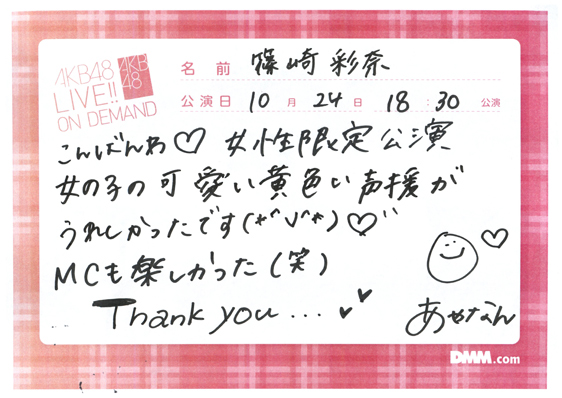 AKB48
LIVE!!
ON DEMAND
AKB
48
名前 篠崎彩奈
公演日 10月24日 18:30公演
こんばんわ♡ 女性限定公演
女の子の可愛い黄色い声援が
うれしかったです(*˘v˘*)♡"
MCも楽しかった(笑)
Thank you...
あやなん
DMM.com